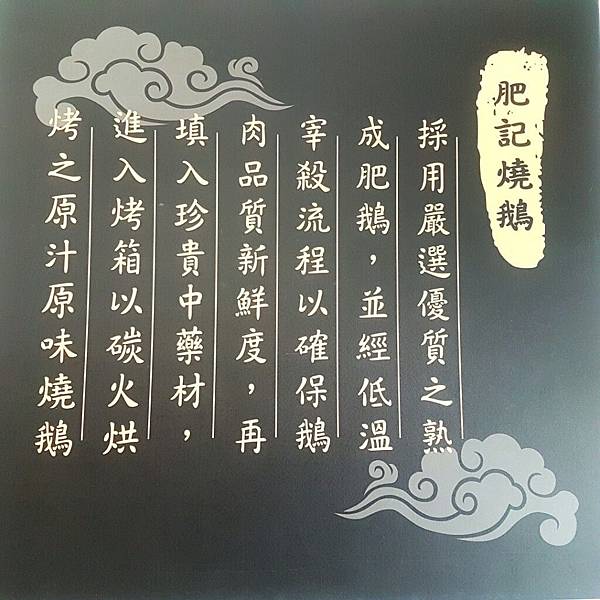 肥記燒鵝
採用嚴選優質之熟
成肥鵝，並經低溫
宰殺流程以確保鵝
肉品質新鮮度，再
填入珍貴中藥材，
進入烤箱以碳火烘
烤之原汁原味燒鵝